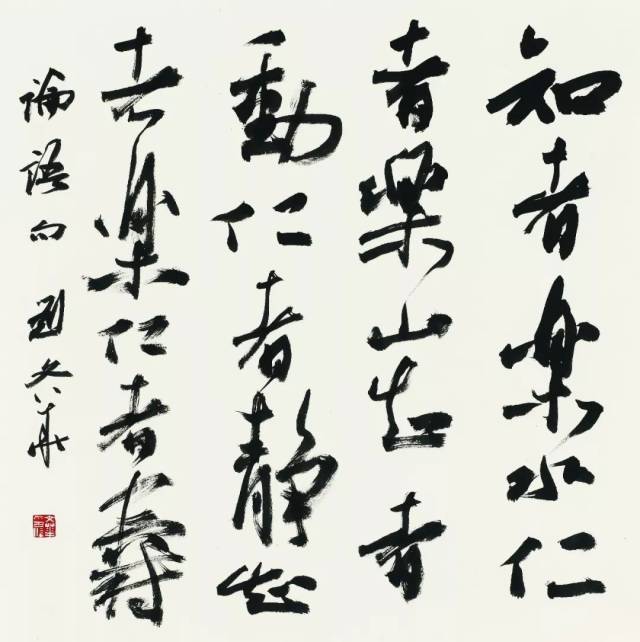 知者樂水仁
者樂山知者
動仁者静知
者樂仁者壽
論語句 劉文華